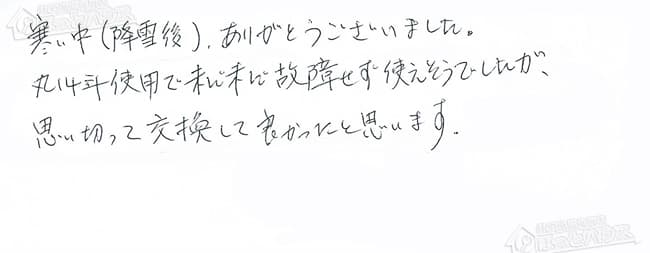 寒い中(降雪後)、ありがとうございました。
丸14年使用で未だ未だ故障せず使えそうでしたが、
思い切って交換して良かったと思います。